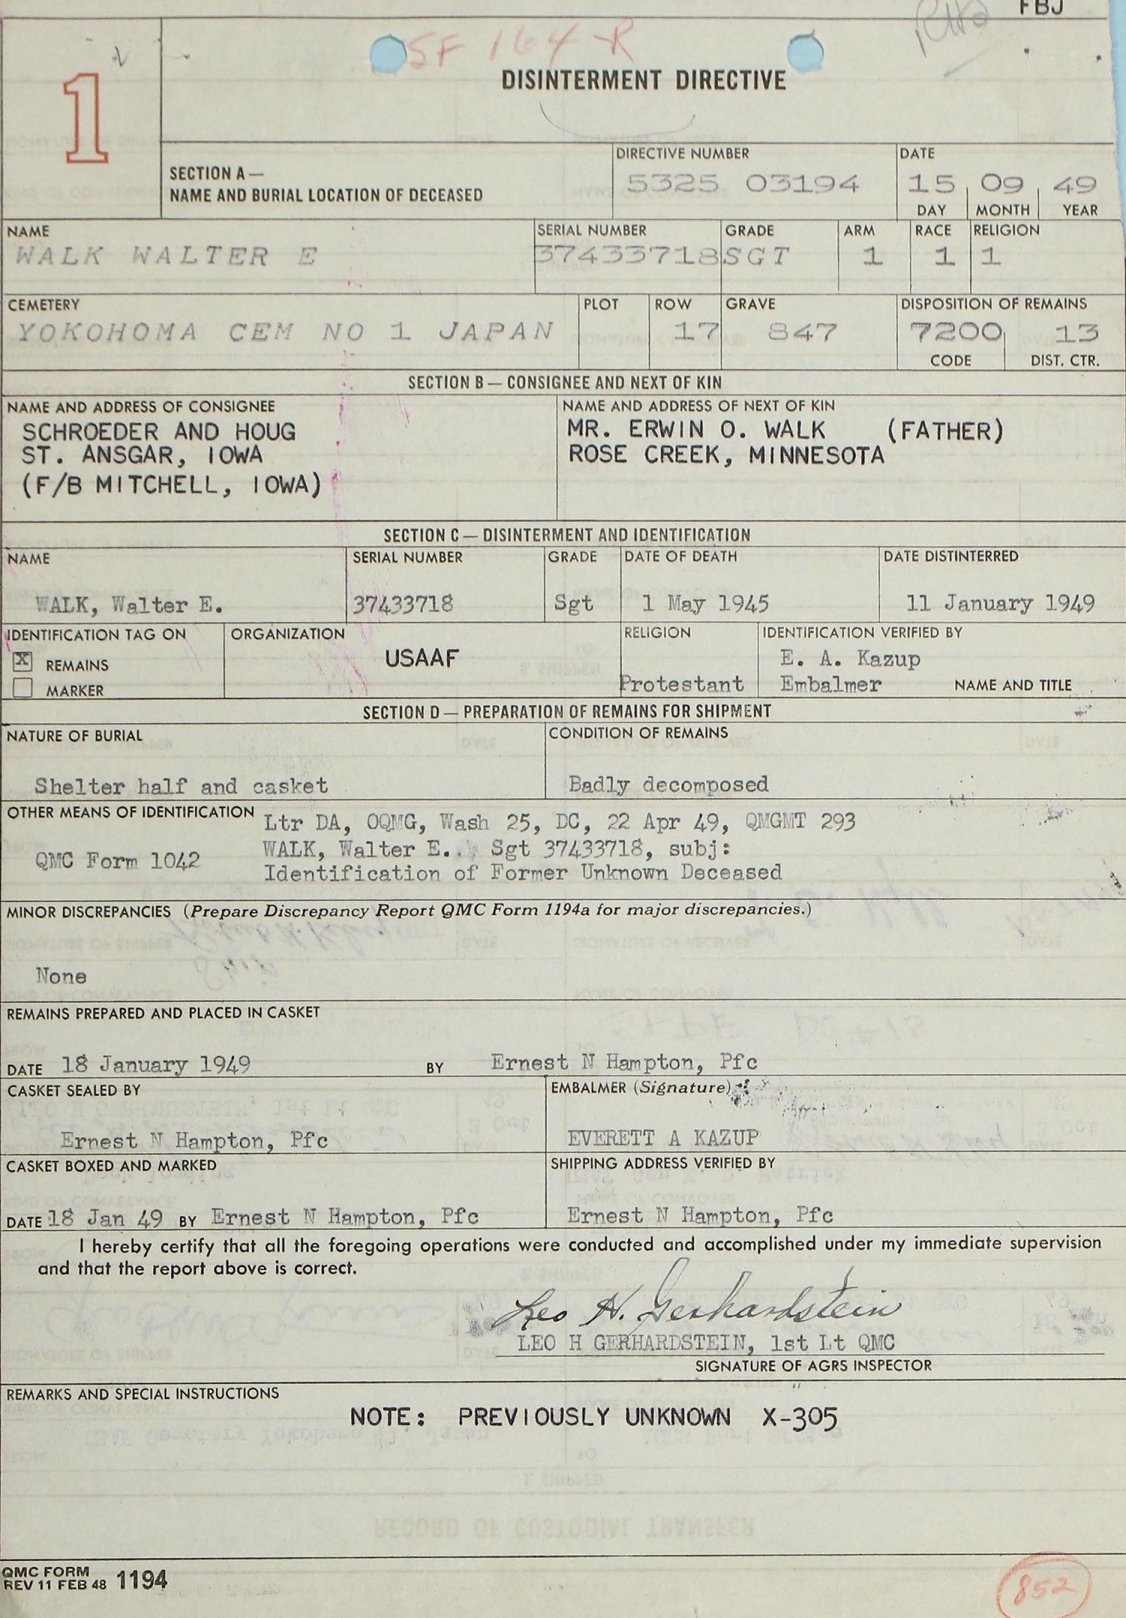 FBJ
SF 164-R
1
DISINTERMENT DIRECTIVE
SECTION A—
NAME AND BURIAL LOCATION OF DECEASED
DIRECTIVE NUMBER
5325 03194
DATE
15 09 49
DAY MONTH YEAR
NAME SERIAL NUMBER GRADE ARM RACE RELIGION
WALK WALTER E 37433718 SGT 1 1 1
CEMETERY PLOT ROW GRAVE DISPOSITION OF REMAINS
YOKOHOMA CEM NO 1 JAPAN 17 847 7200 13
CODE DIST. CTR.
SECTION B — CONSIGNEE AND NEXT OF KIN
NAME AND ADDRESS OF CONSIGNEE
SCHROEDER AND HOUG
ST. ANSGAR, IOWA
(F/B MITCHELL, IOWA)
NAME AND ADDRESS OF NEXT OF KIN
MR. ERWIN O. WALK (FATHER)
ROSE CREEK, MINNESOTA
SECTION C — DISINTERMENT AND IDENTIFICATION
NAME SERIAL NUMBER GRADE DATE OF DEATH DATE DISTINTERRED
WALK, Walter E. 37433718 Sgt 1 May 1945 11 January 1949
IDENTIFICATION TAG ON
X REMAINS
MARKER
ORGANIZATION
USAAF
RELIGION
Protestant
IDENTIFICATION VERIFIED BY
E. A. Kazup
Embalmer NAME AND TITLE
SECTION D — PREPARATION OF REMAINS FOR SHIPMENT
NATURE OF BURIAL CONDITION OF REMAINS
Shelter half and casket Badly decomposed
OTHER MEANS OF IDENTIFICATION
QMC Form 1042
Ltr DA, OQMG, Wash 25, DC, 22 Apr 49, QMGMT 293
WALK, Walter E.. Sgt 37433718, subj:
Identification of Former Unknown Deceased
MINOR DISCREPANCIES (Prepare Discrepancy Report QMC Form 1194a for major discrepancies.)
None
REMAINS PREPARED AND PLACED IN CASKET
DATE 18 January 1949 BY Ernest N Hampton, Pfc
CASKET SEALED BY EMBALMER (Signature)
Ernest N Hampton, Pfc EVERETT A KAZUP
CASKET BOXED AND MARKED SHIPPING ADDRESS VERIFIED BY
DATE 18 Jan 49 BY Ernest N Hampton, Pfc Ernest N Hampton, Pfc
I hereby certify that all the foregoing operations were conducted and accomplished under my immediate supervision
and that the report above is correct.
Leo H. Gerhardstein
LEO H GERHARDSTEIN, 1st Lt QMC
SIGNATURE OF AGRS INSPECTOR
REMARKS AND SPECIAL INSTRUCTIONS
NOTE: PREVIOUSLY UNKNOWN X-305
QMC FORM
REV 11 FEB 48 1194
852